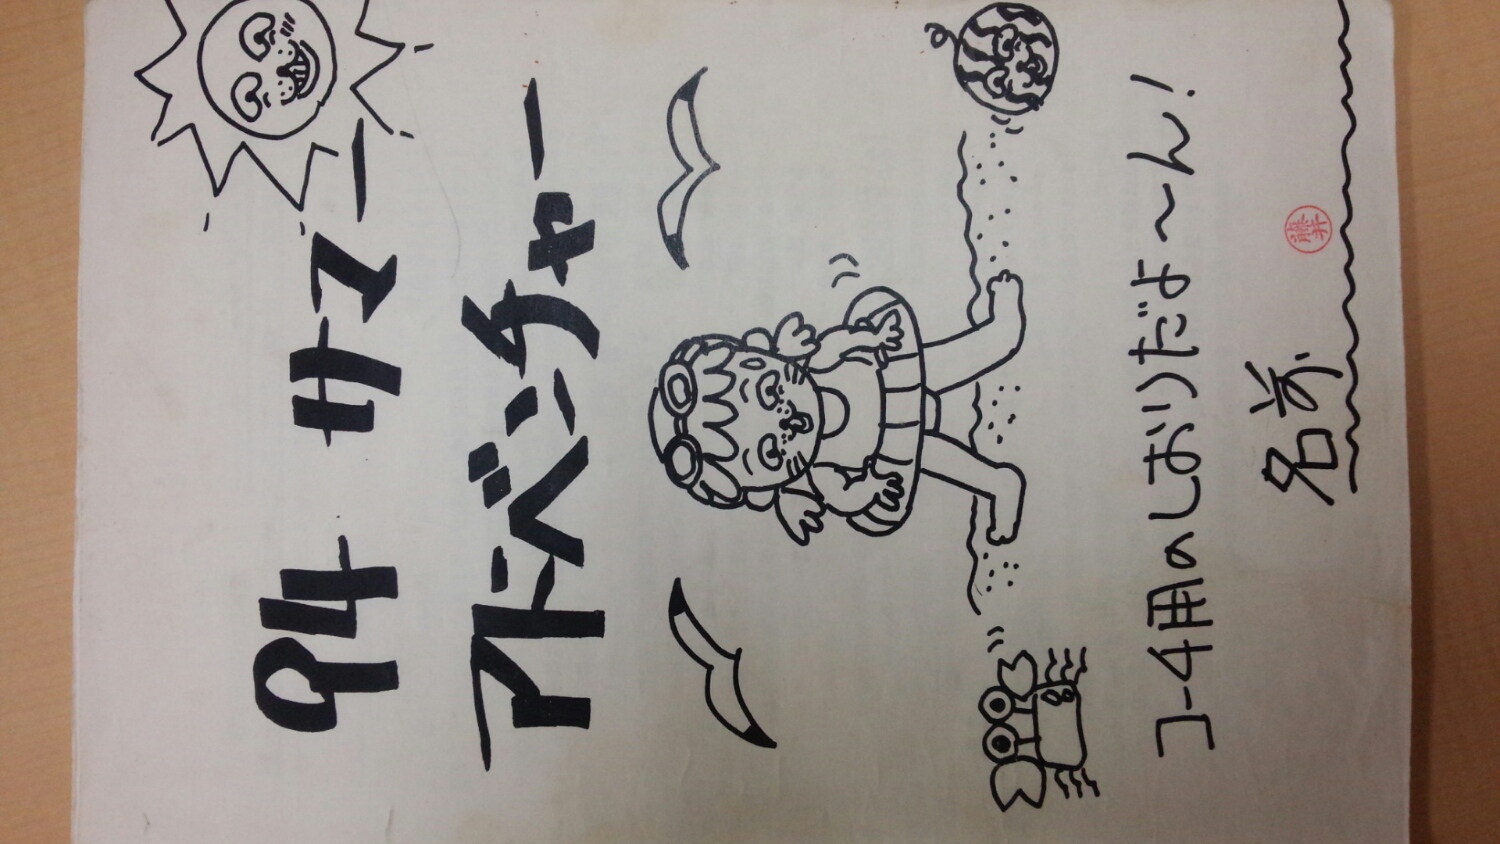 94 サマー
アドベンチャー
コー4用のしおりだよ〜ん!
名前
藤井